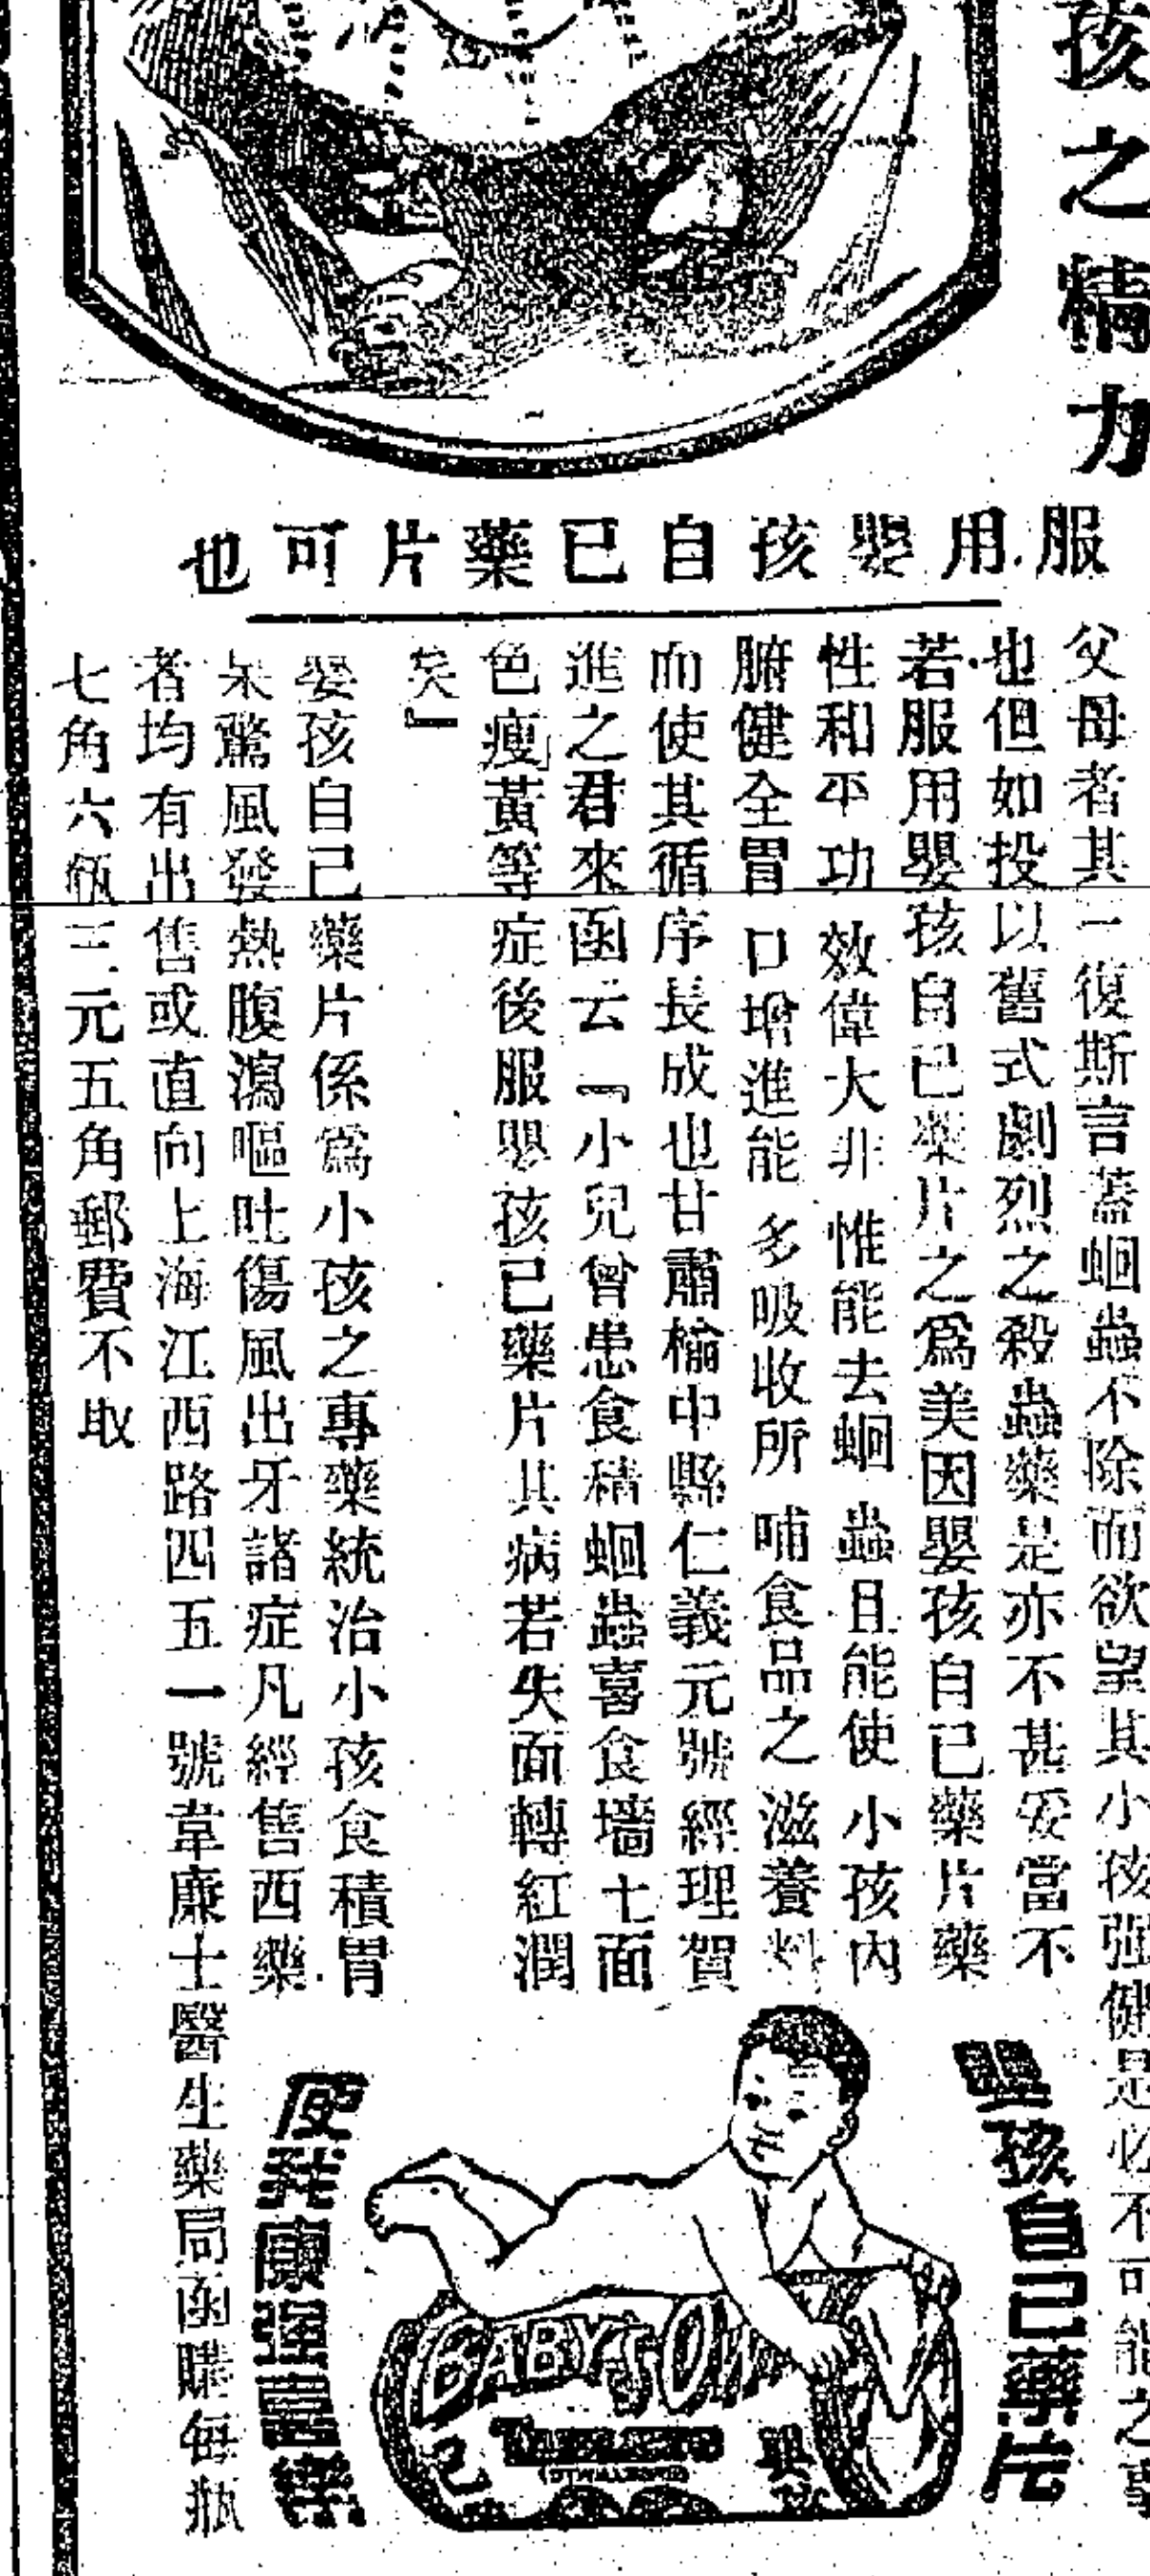 孩之精力
服用嬰孩自己藥片可也
父母者其一復斯言蓋蛔蟲不除而欲望其小孩强健是必不可能之事
也但如投以舊式劇烈之殺蟲藥是亦不甚妥當不
若服用嬰孩自己藥片之爲美因嬰孩自己藥片藥
性和平功效偉大非惟能去蛔蟲且能使小孩內
腑健全胃口增進能多吸收所哺食品之滋養料
而使其循序長成也甘肅榆中縣仁義元號經理賀
進之君來函云『小兒曾患食積蛔蟲喜食墻土面
色瘦黃等症後服嬰孩已藥片其病若失面轉紅潤
矣』
嬰孩自已藥片係爲小孩之專藥統治小孩食積胃
呆驚風發熱腹瀉嘔吐傷風出牙諸症凡經售西藥
者均有出售或直向上海江西路四五一號韋廉士醫生藥局函購每瓶
七角六瓶三元五角郵費不取
嬰孩自己藥片
BABY'S OWN
TABLETS
己
使我康强喜樂